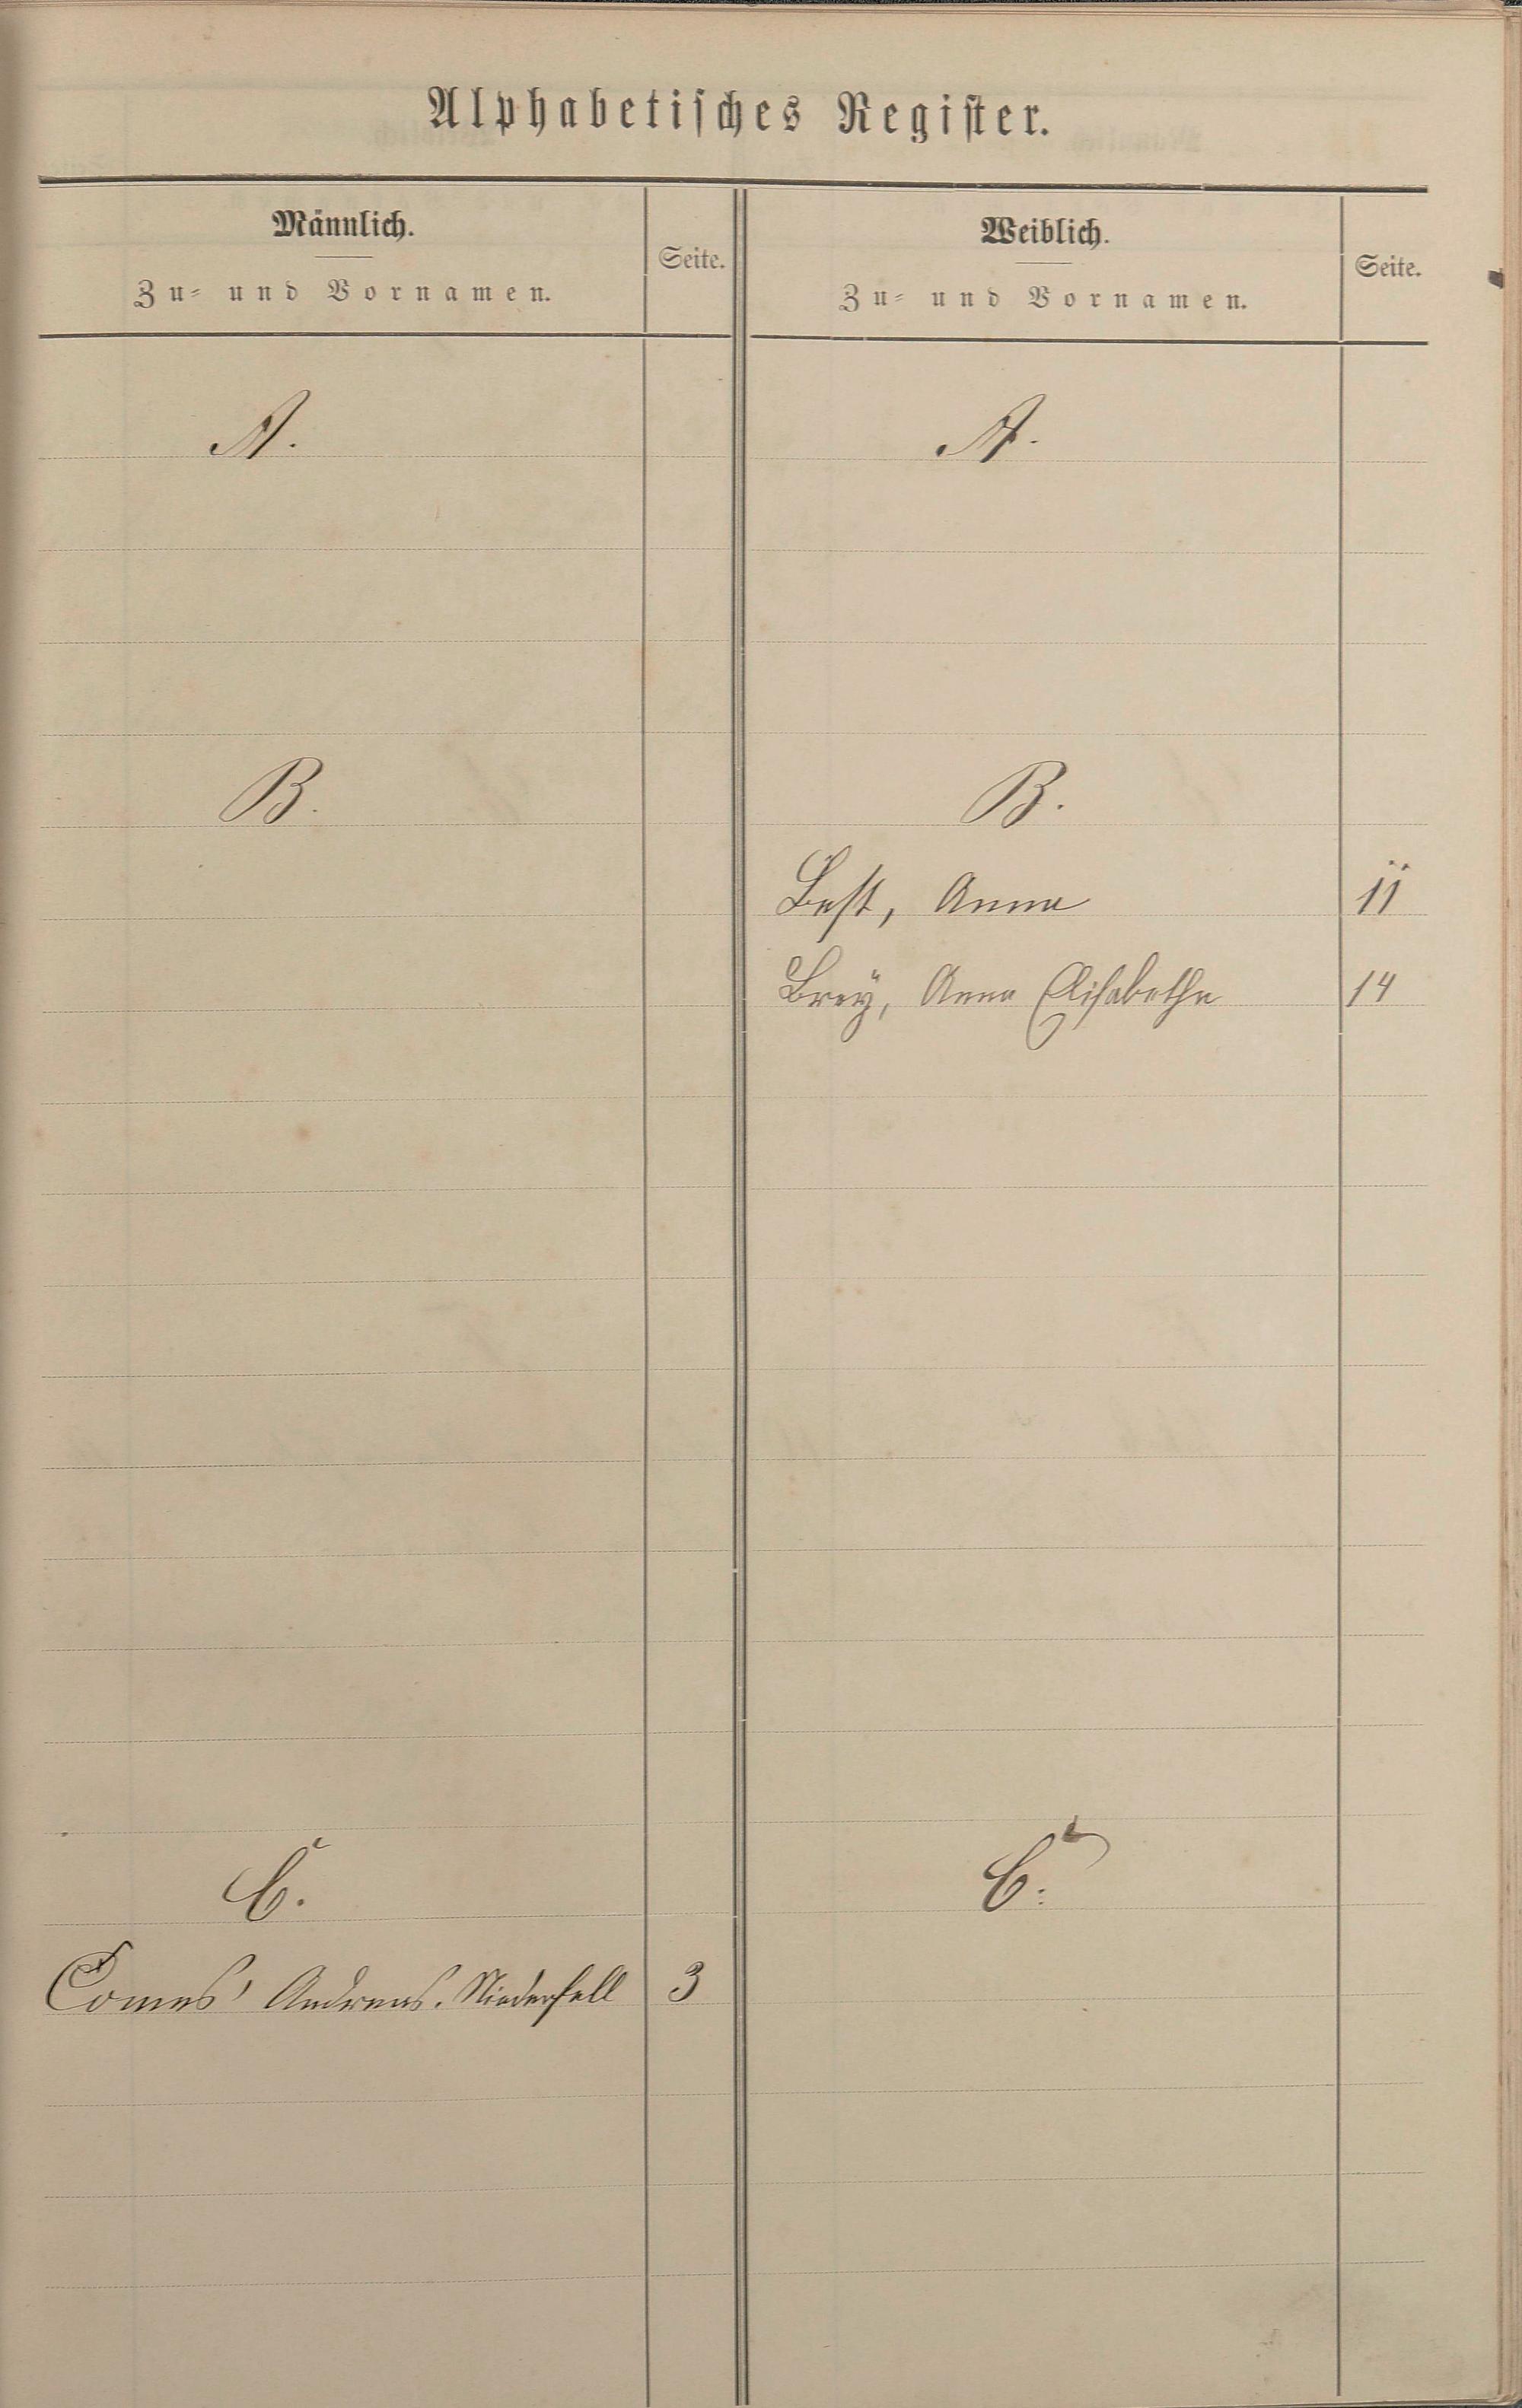 Alphabetisches Register.
Männlich.
Zu- und Vornamen.
Seite.
Weiblich.
Zu- und Vornamen.
Seite.
A.
A.
B.
B.
Best, Anna 11
Breÿ, Anna Elisabetha 14
C.
C.
Comes, Andreas. Niederfell 3